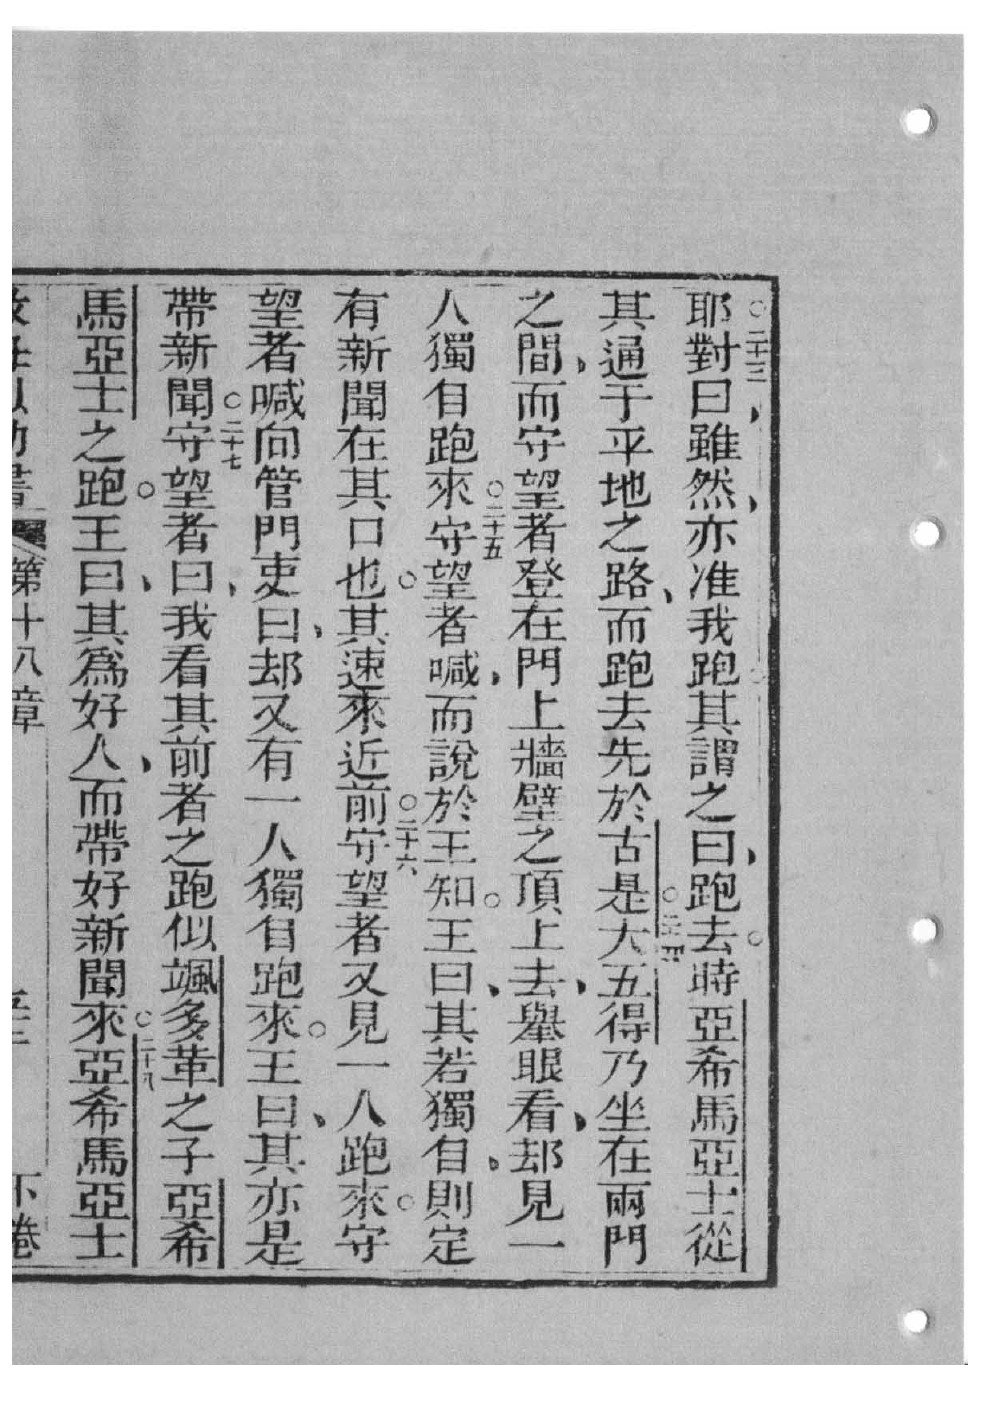 ○二十三耶對曰、雖然、亦准我跑其謂之曰、跑去○時亞希馬亞士從
其通于平地之路、而跑去先於古○二十四是大五得乃坐在兩門
之間、而守望者登在門上牆壁之頂上去、舉眼看、却見一
人獨自跑來○二十五守望者喊、而說於王知○王曰、其若獨自、則定
有新聞在其口也○其速來近前○二十六守望者又見一人跑來○守
望者喊向管門吏曰、却又有一人獨自跑來○王曰、其亦是
帶新聞○二十七守望者曰、我看其前者之跑似颯多革之子亞希
馬亞士之跑○王曰、其爲好人、而帶好新聞來○二十八亞希馬亞士
第十八章
下卷